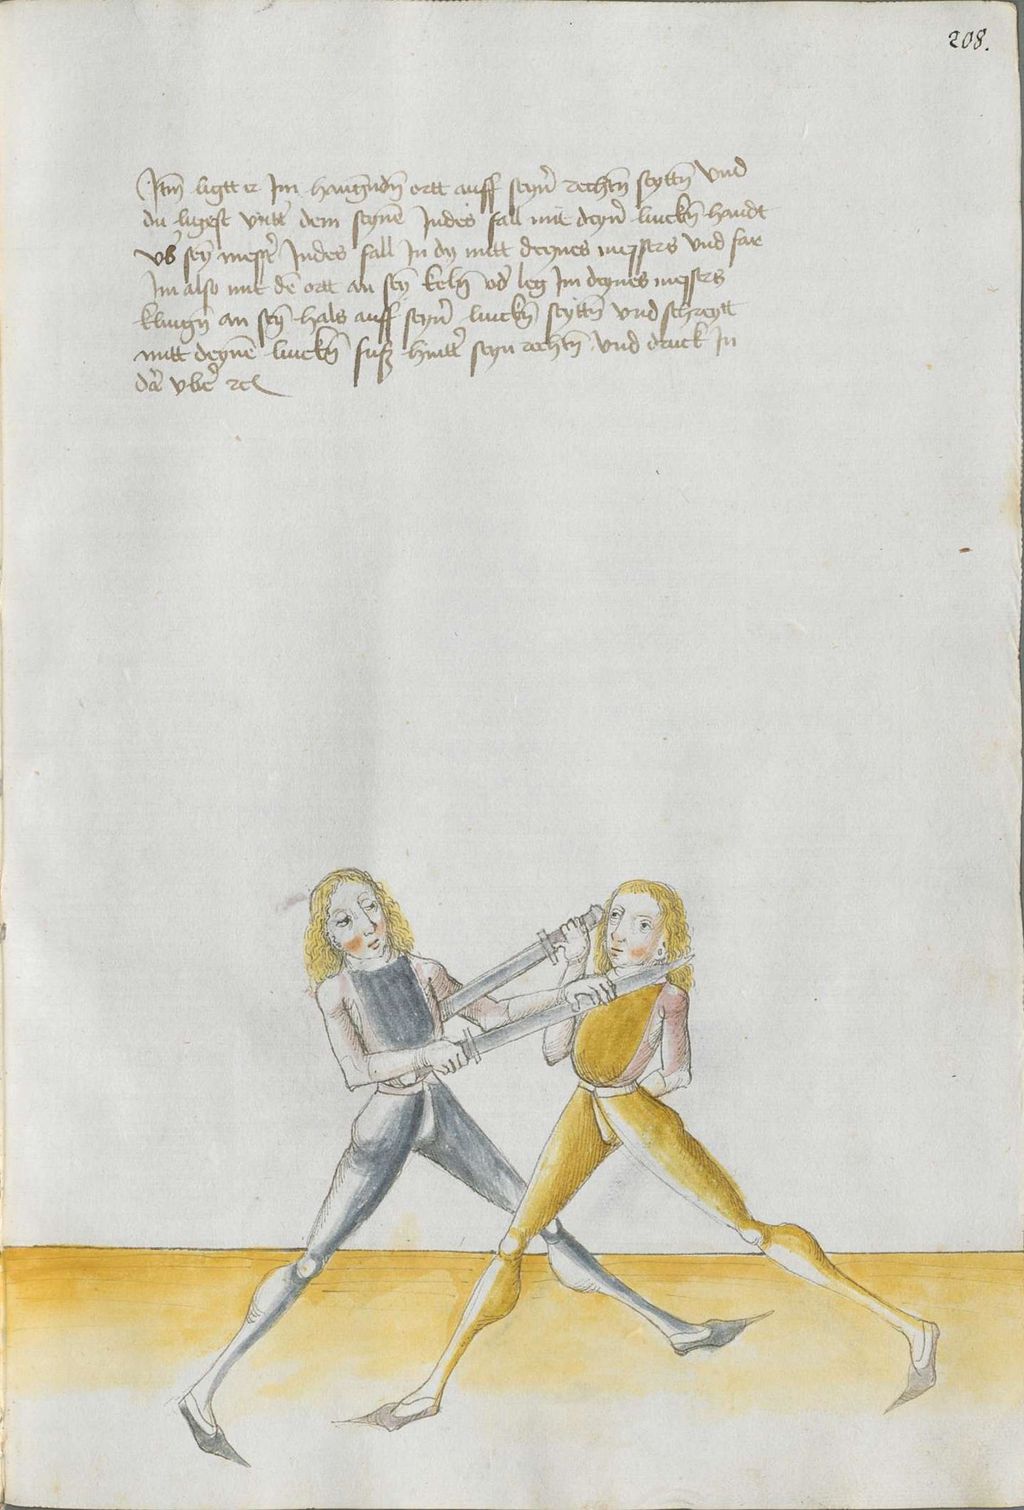 208.
Itm̄ ligtt er Im hanngendn̄ ortt auff seyn̄ rechtn̄ seyttn̄ Vnd
du ligest vntt' dem seynē Indes fall mit deyn̄ linckn̄ handt
vb' sey messr̄ Indes fall In dy mitt deynes messers vnd far
Im also mit dē ortt an sey keln̄ od' leg Im deynes messers
klingn̄ an sey hals auff seyn̄ linckn̄ seyttn̄ vnd schreytt
mitt deynē linckn̄ fuß hintt' seyn rechtn̄ vnd druck In
dar̄ vber̄ ⁊c